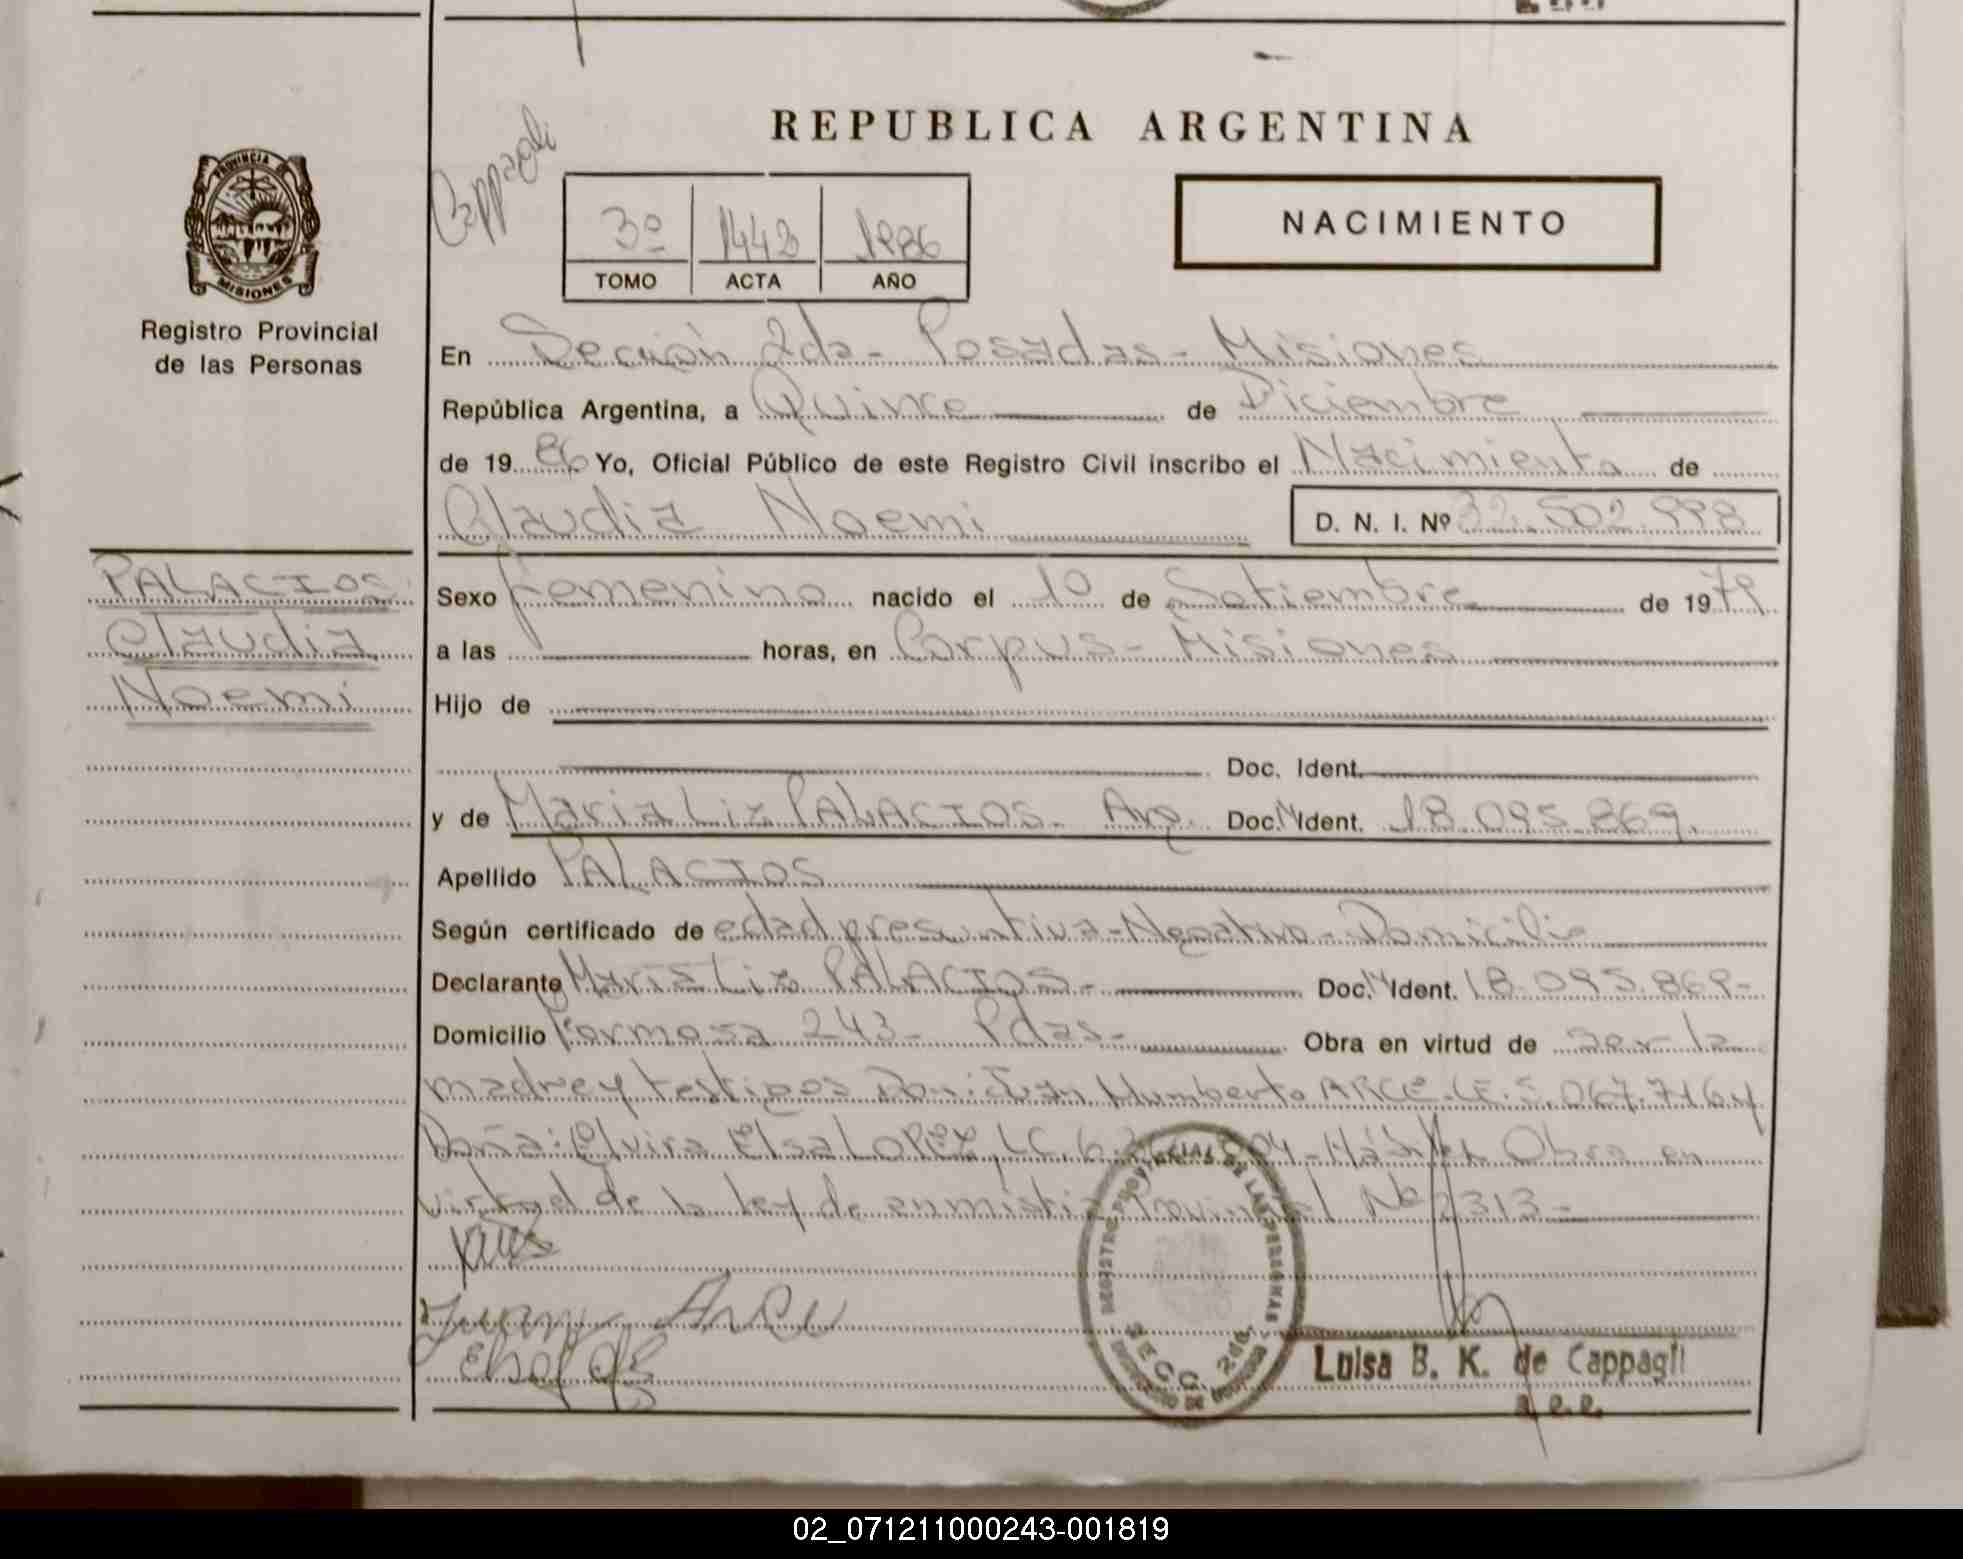 REPUBLICA ARGENTINA
Cappagli
PROVINCIA DE
MISIONES
Registro Provincial
de las Personas
3º 1443 1986
TOMO ACTA AÑO
NACIMIENTO
En Sección 2da - Posadas - Misiones
República Argentina, a Quince de Diciembre
de 19 86 Yo, Oficial Público de este Registro Civil inscribo el Nacimiento de
Claudia Noemi D. N. I. Nº 32.502.998
PALACIOS
Claudia
Noemi
Sexo Femenino nacido el 10 de Setiembre de 19 79
a las horas, en Corpus - Misiones
Hijo de
Doc. Ident.
y de Maria Liz PALACIOS - Arg. Doc. Ident. 18.095.869.
Apellido PALACIOS
Según certificado de edad presuntiva - Negativo - Domicilio
Declarante Maria Liz PALACIOS - Doc. Ident. 18.095.869-
Domicilio Formosa 243 - Pdas - Obra en virtud de ser la
madre y testigos Don: Juan Humberto ARCE. LE. 5.067.716 y
Doña: Elvira Elsa LOPEZ, LC. 6. - Hábiles Obra en
virtud de la Ley de anmistia Provincial Nº 2313-
Juan Arce
REGISTRO PROVINCIAL DE LAS PERSONAS
SECC. 2da.
Luisa B. K. de Cappagli
02_071211000243-001819